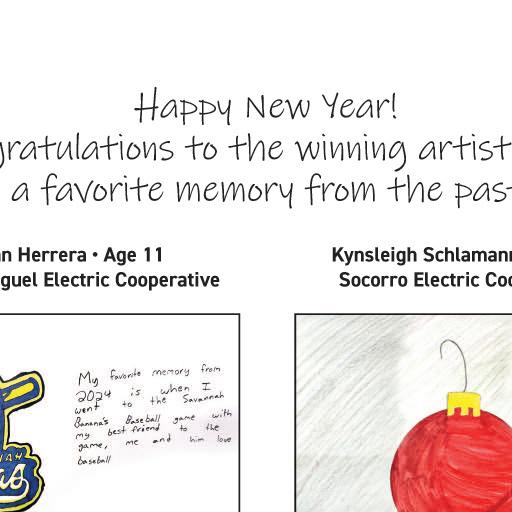 Happy New Year!
gratulations to the winning artist
a favorite memory from the past
n Herrera • Age 11
guel Electric Cooperative
Kynsleigh Schlamann
Socorro Electric Coo
My favorite memory from
2024 is when I
went to the Savannah
Banana's Baseball game with
my best friend to the
game, me and him love
baseball
NAH